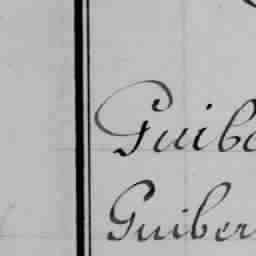 Guibe
Guiber